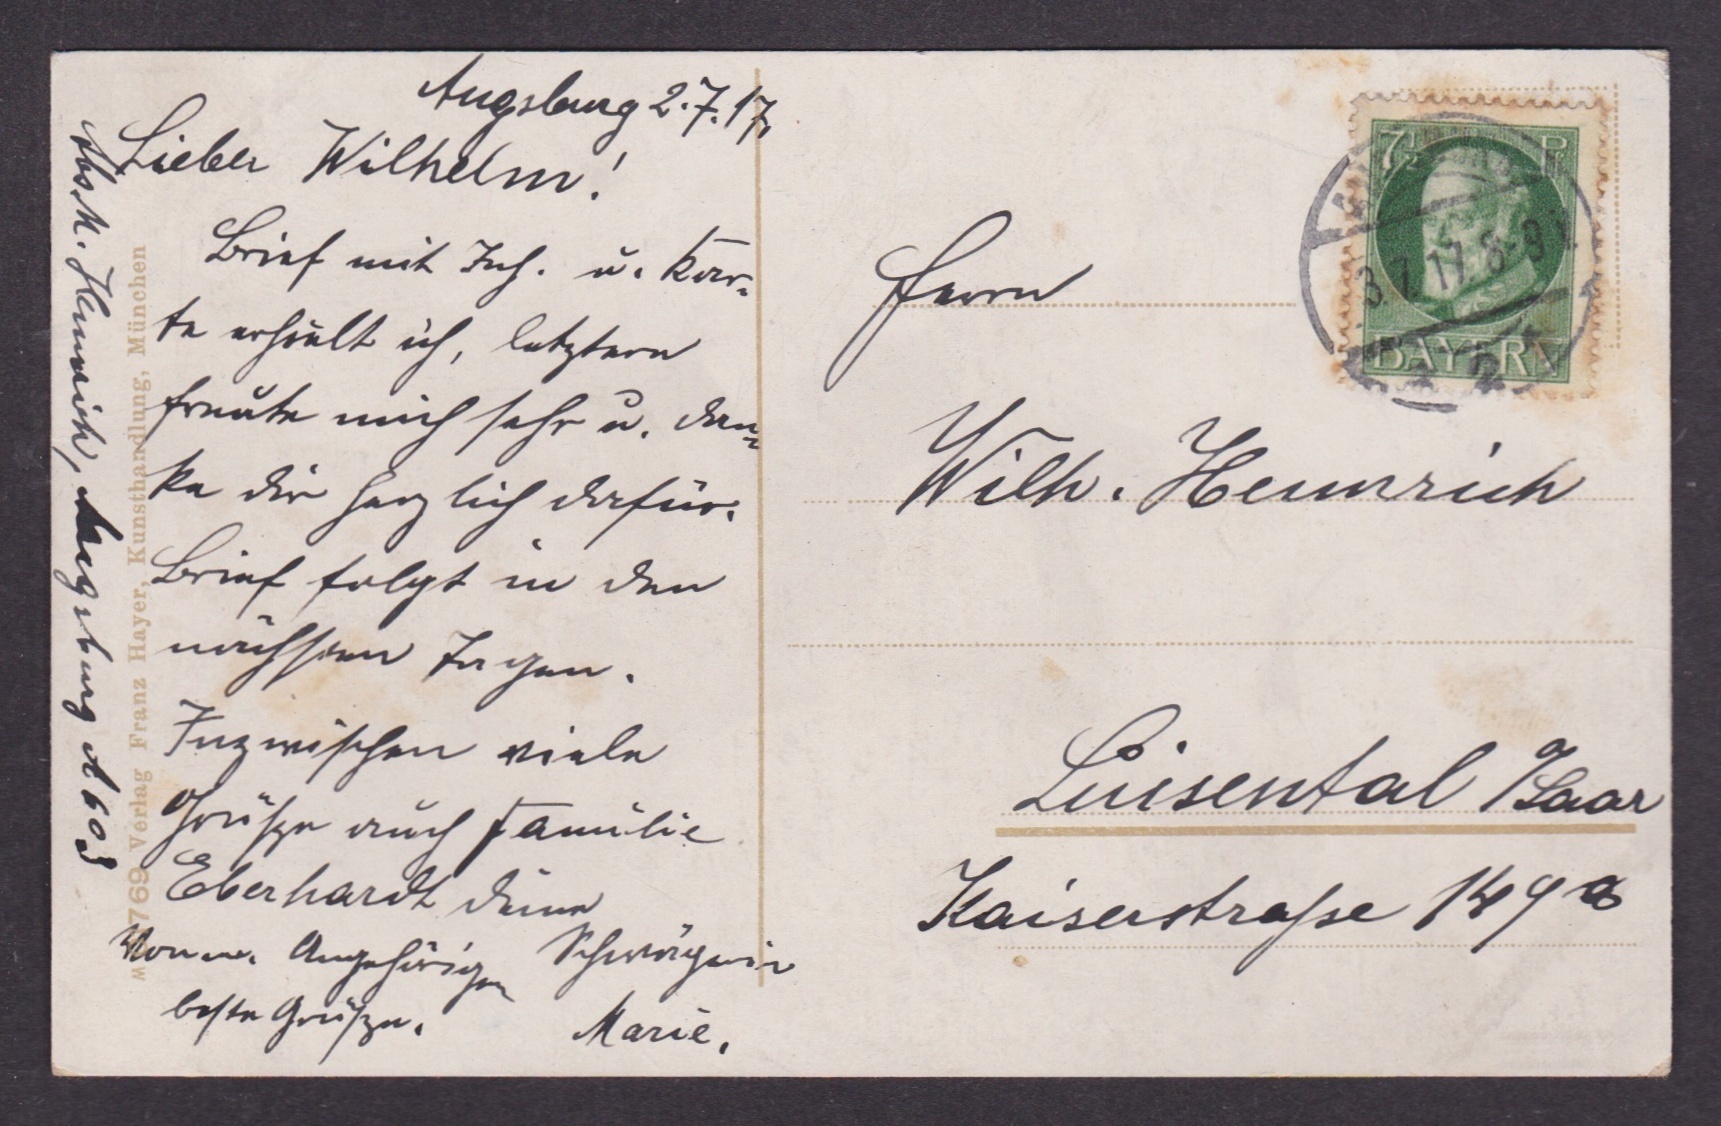 Augsburg 2.7.17.
Lieber Wilhelm!
Brief mit Inh. u. Kar-
te erhielt ich, letztere
freute mich sehr u. dan-
ke dir herzlich dafür.
Brief folgt in den
nächsten Tagen.
Inzwischen viele
Grüße auch Familie
Eberhardt deine
Schwägerin
Marie.
Von m. Angehörigen
beste Grüße.
Abs. M. Hennrich, Augsburg A 603
769 Verlag Franz Hayer, Kunsthandlung, München
7½ P
3.7.17. 8-9 V
BAYERN
Herrn
Wilh. Hennrich
Luisental a/Saar
Kaiserstraße 149 a